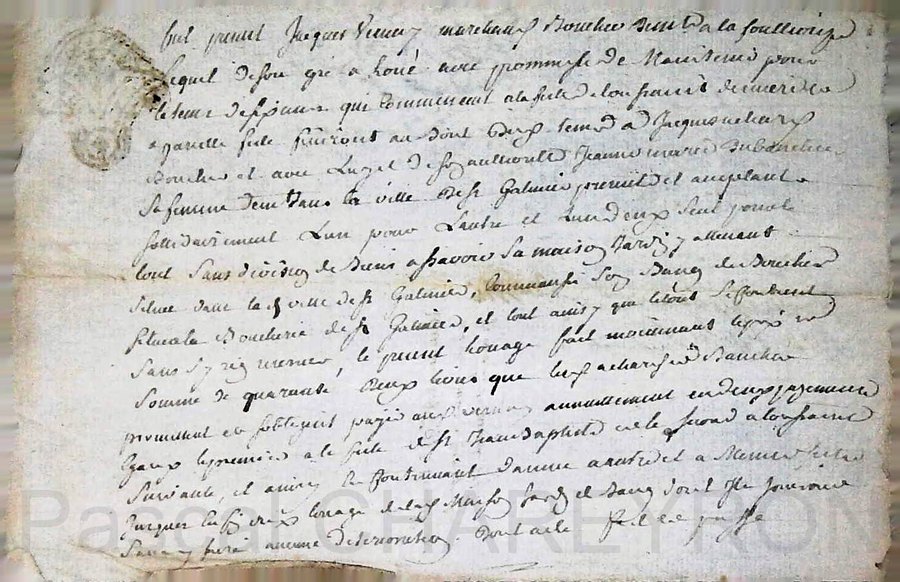 fut présent Jacques Vernay marchand Boucher demt à la fouillouze
lequel de son gré a loué avec promesse de maintenir pour
le tems de six ans qui commencent à la fête de toussaint dernier
a pareille fête finiront au dont Deux tems à Jacques
Boucher et avec Luy et de Son authorité Jeanne marie
Sa femme demt dans la ville de St Galmier prenant et acceptant
sollidairement L'un pour L'autre et un deux Seul pour le
tout Sans division de Biens a Scavoir Sa maison Jardin attenant
Située dans la d ville de St Galmier, comm aussi Son Banc de Boucher
Situé a la Boucherie de St Galmier, et tout ainsi que le tout Se contient
Sans Sy rien réserver, le présent louage fait moiennant le prix et
Somme de quarante Deux livres que les
promettent et Sobligent payer aud vernay annuellement en deux payements
Egaux le premier a la fête de St Jean Baptiste et le Second a toussaint
Suivante, et ainsi En Continuant d'année a autre et a même fête
Jusques Louage de lad Maison Jardin et Banc dont Ils jouiront
Sans y faire aucune déterioration Dont acte fait et passé
Pascal CHAREYRON